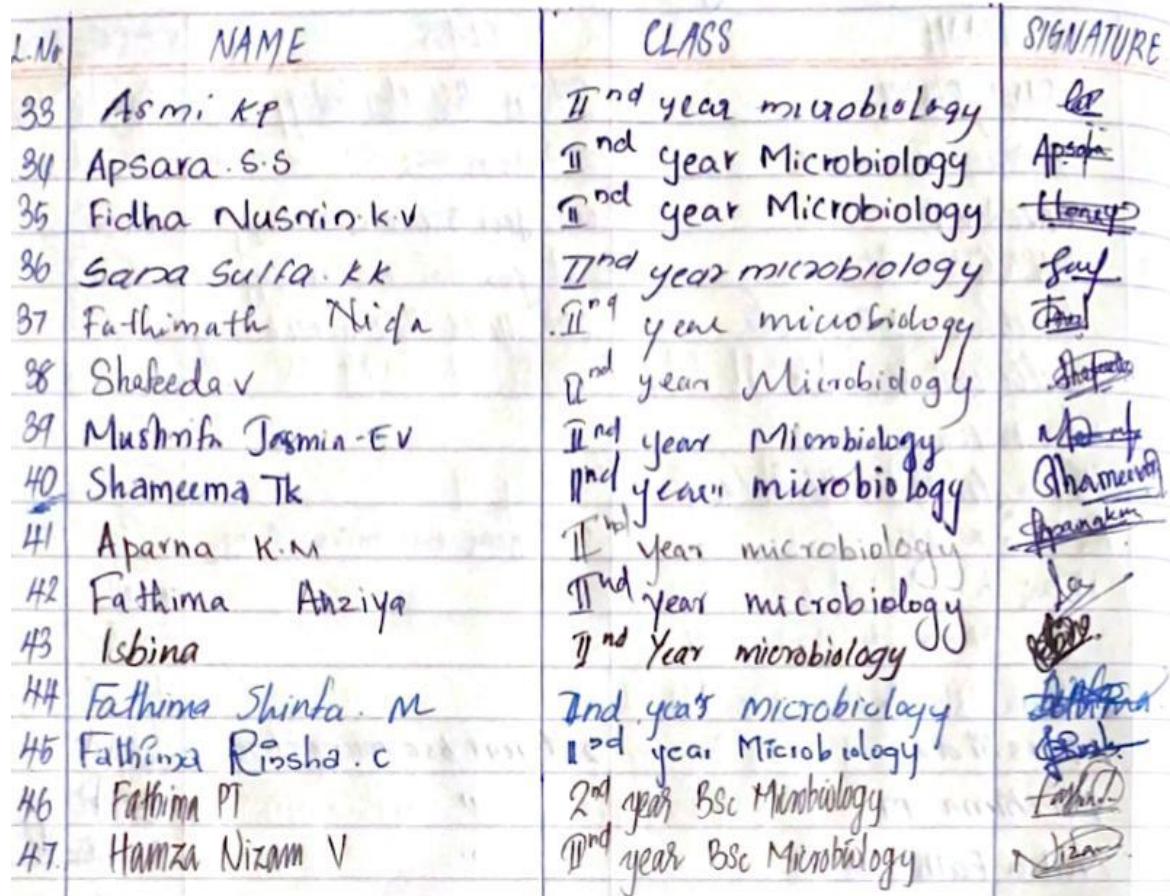 L.No NAME CLASS SIGNATURE
33 Asmi KP IInd year microbiology
34 Apsara.S.S IInd year Microbiology Apsara
35 Fidha Nusrin.K.V IInd year Microbiology
36 Sana Sulfa.KK IInd year microbiology
37 Fathimath Nida IInd year microbiology
38 Shafeeda V IInd year Microbiology Shafeeda
39 Mushrifa Jasmin-EV IInd year Microbiology
40 Shameema Tk IInd year microbiology Shameema
41 Aparna K.M II nd year microbiology Aparnakm
42 Fathima Anziya IInd year microbiology
43 Isbina II nd Year microbiology
44 Fathima Shinfa. M IInd year microbiology
45 Fathima Rissha.C IInd year Microbiology
46 Fathima PT 2nd year BSc Microbiology
47. Hamza Nizam V IInd year BSc Microbiology Nizam